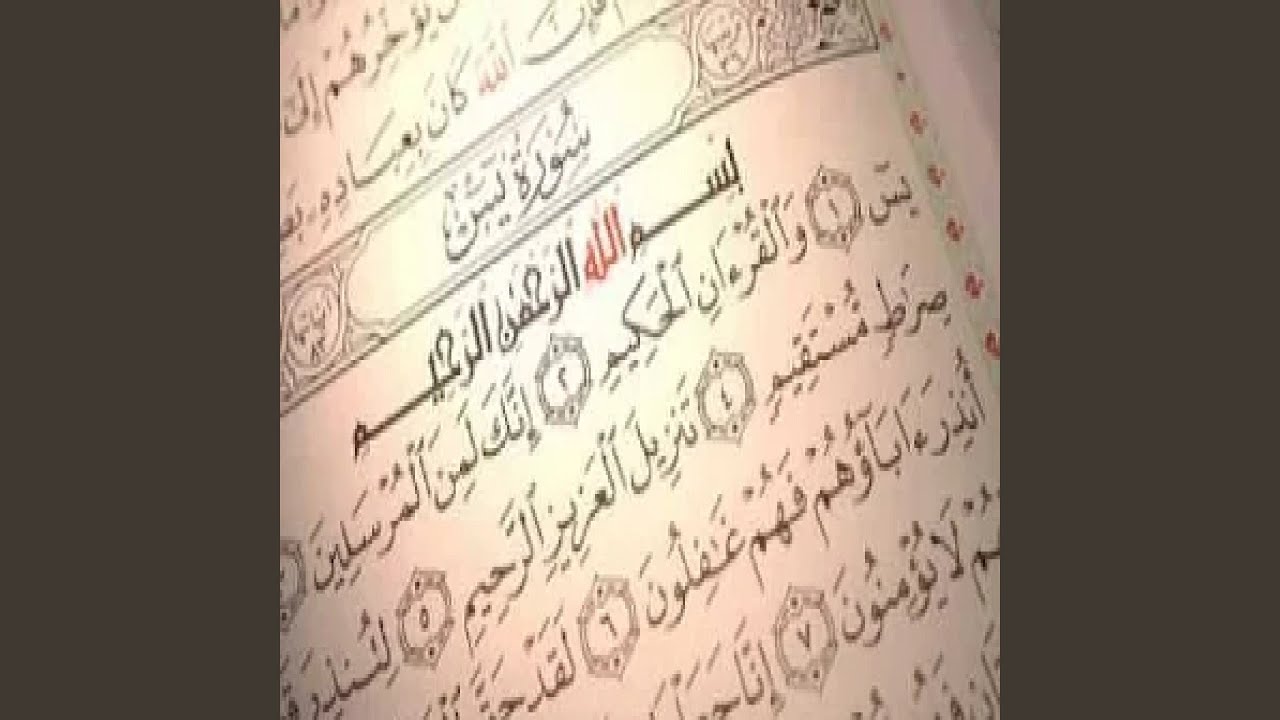 يُؤَخِّرُهُمْ إِلَىٰ
فَإِنَّ ٱللَّهَ كَانَ بِعِبَادِهِۦ
سُورَةُ يسٓ
بِسْمِ ٱللَّهِ ٱلرَّحْمَٰنِ ٱلرَّحِيمِ
يسٓ ١ وَٱلْقُرْءَانِ ٱلْحَكِيمِ ٢ إِنَّكَ لَمِنَ ٱلْمُرْسَلِينَ
صِرَٰطٍ مُّسْتَقِيمٍ ٤ تَنزِيلَ ٱلْعَزِيزِ ٱلرَّحِيمِ ٥ لِتُنذِرَ
أُنذِرَ ءَابَآؤُهُمْ فَهُمْ غَٰفِلُونَ ٦ لَقَدْ
لَا يُؤْمِنُونَ ٧ إِنَّا